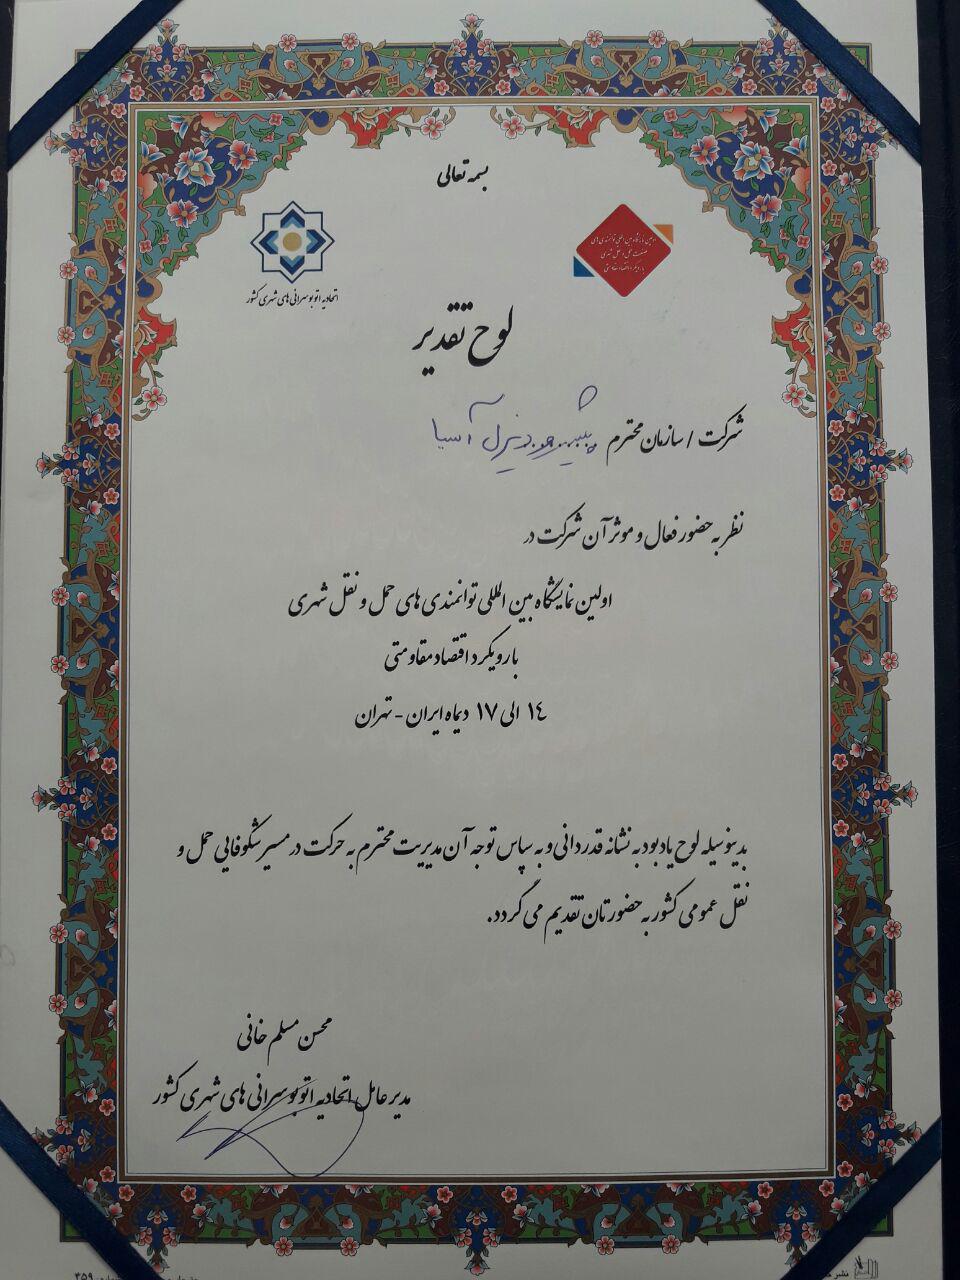 بسمه تعالی
اولین نمایشگاه بین المللی توانمندی های
صنعت حمل و نقل شهری
با رویکرد اقتصاد مقاومتی
اتحادیه اتوبوسرانی های شهری کشور
لوح تقدیر
شرکت / سازمان محترم پیشرو دیزل آسیا
نظر به حضور فعال و موثر آن شرکت در
اولین نمایشگاه بین المللی توانمندی های حمل و نقل شهری
با رویکرد اقتصاد مقاومتی
۱۴ الی ۱۷ دیماه ایران - تهران
بدینوسیله لوح یادبود به نشانه قدردانی و به سپاس توجه آن مدیریت محترم به حرکت در مسیر شکوفایی حمل و
نقل عمومی کشور به حضورتان تقدیم می گردد.
محسن مسلم خانی
مدیر عامل اتحادیه اتوبوسرانی های شهری کشور
نشر
۳۵۹